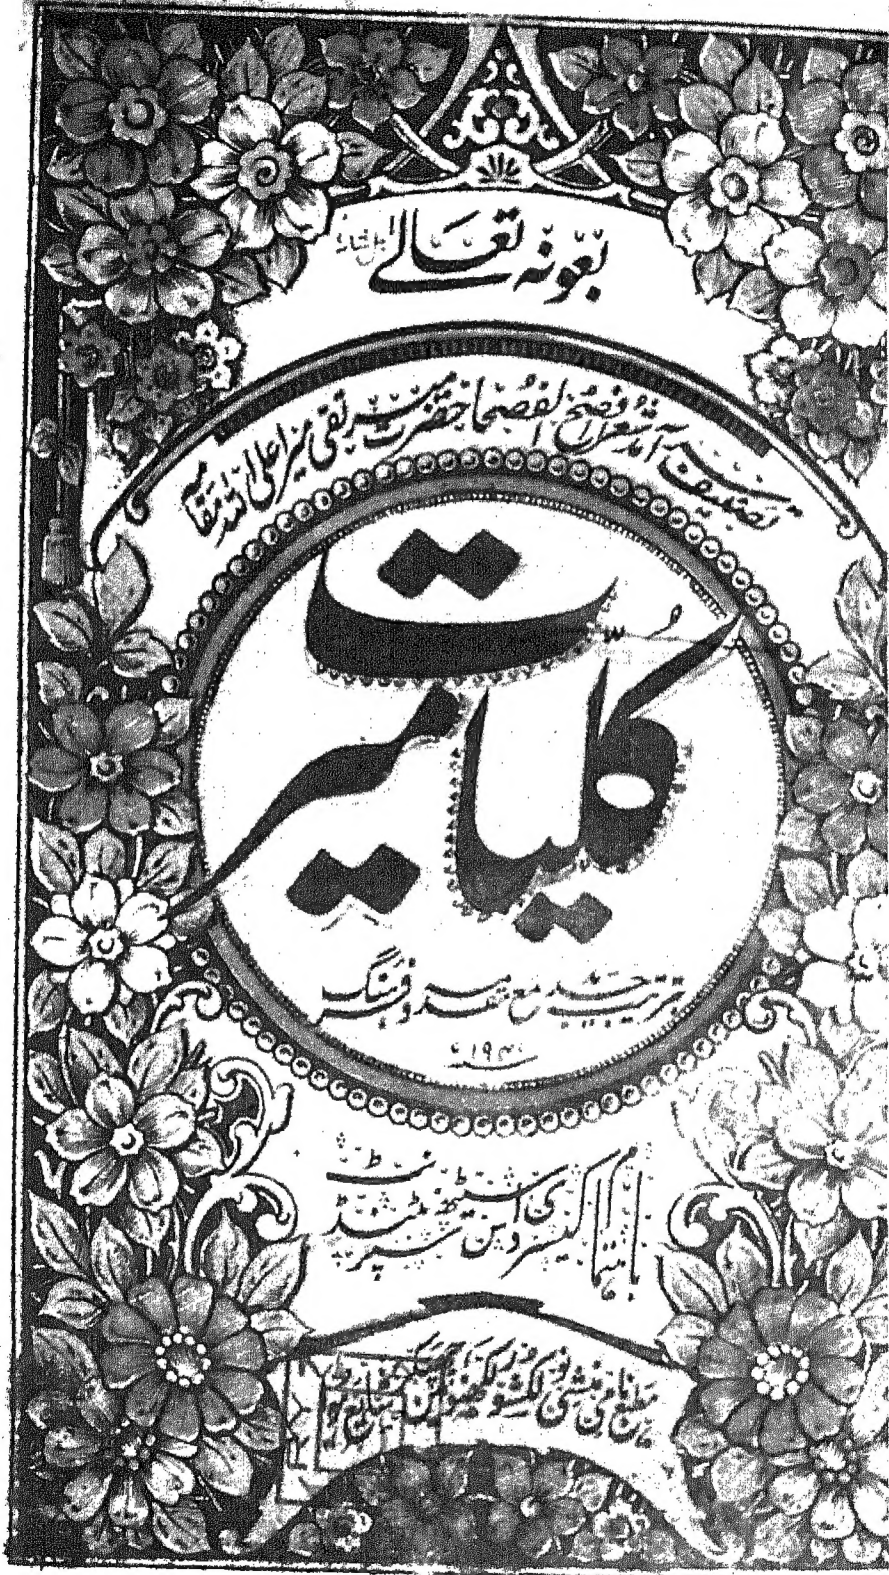 بعونہ تعالیٰ
تصنیف سرآمد شعرا افصح الفصحا حضرت میر تقی میر اعلی اللہ مقامہ
کلیات میر
بترتیب جدید مع مقدمہ و فرہنگ
باہتمام کیسری داس سیٹھ سپرنٹنڈنٹ
مطبع نامی منشی نولکشور لکھنؤ میں